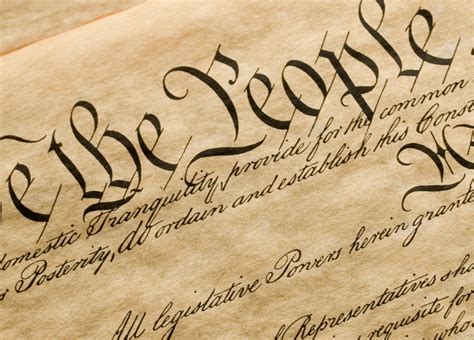 e the People
omestic Tranquility, provide for the common
r Posterity, do ordain and establish this Cons
All legislative Powers herein grante
Representatives sha
requisite for
who